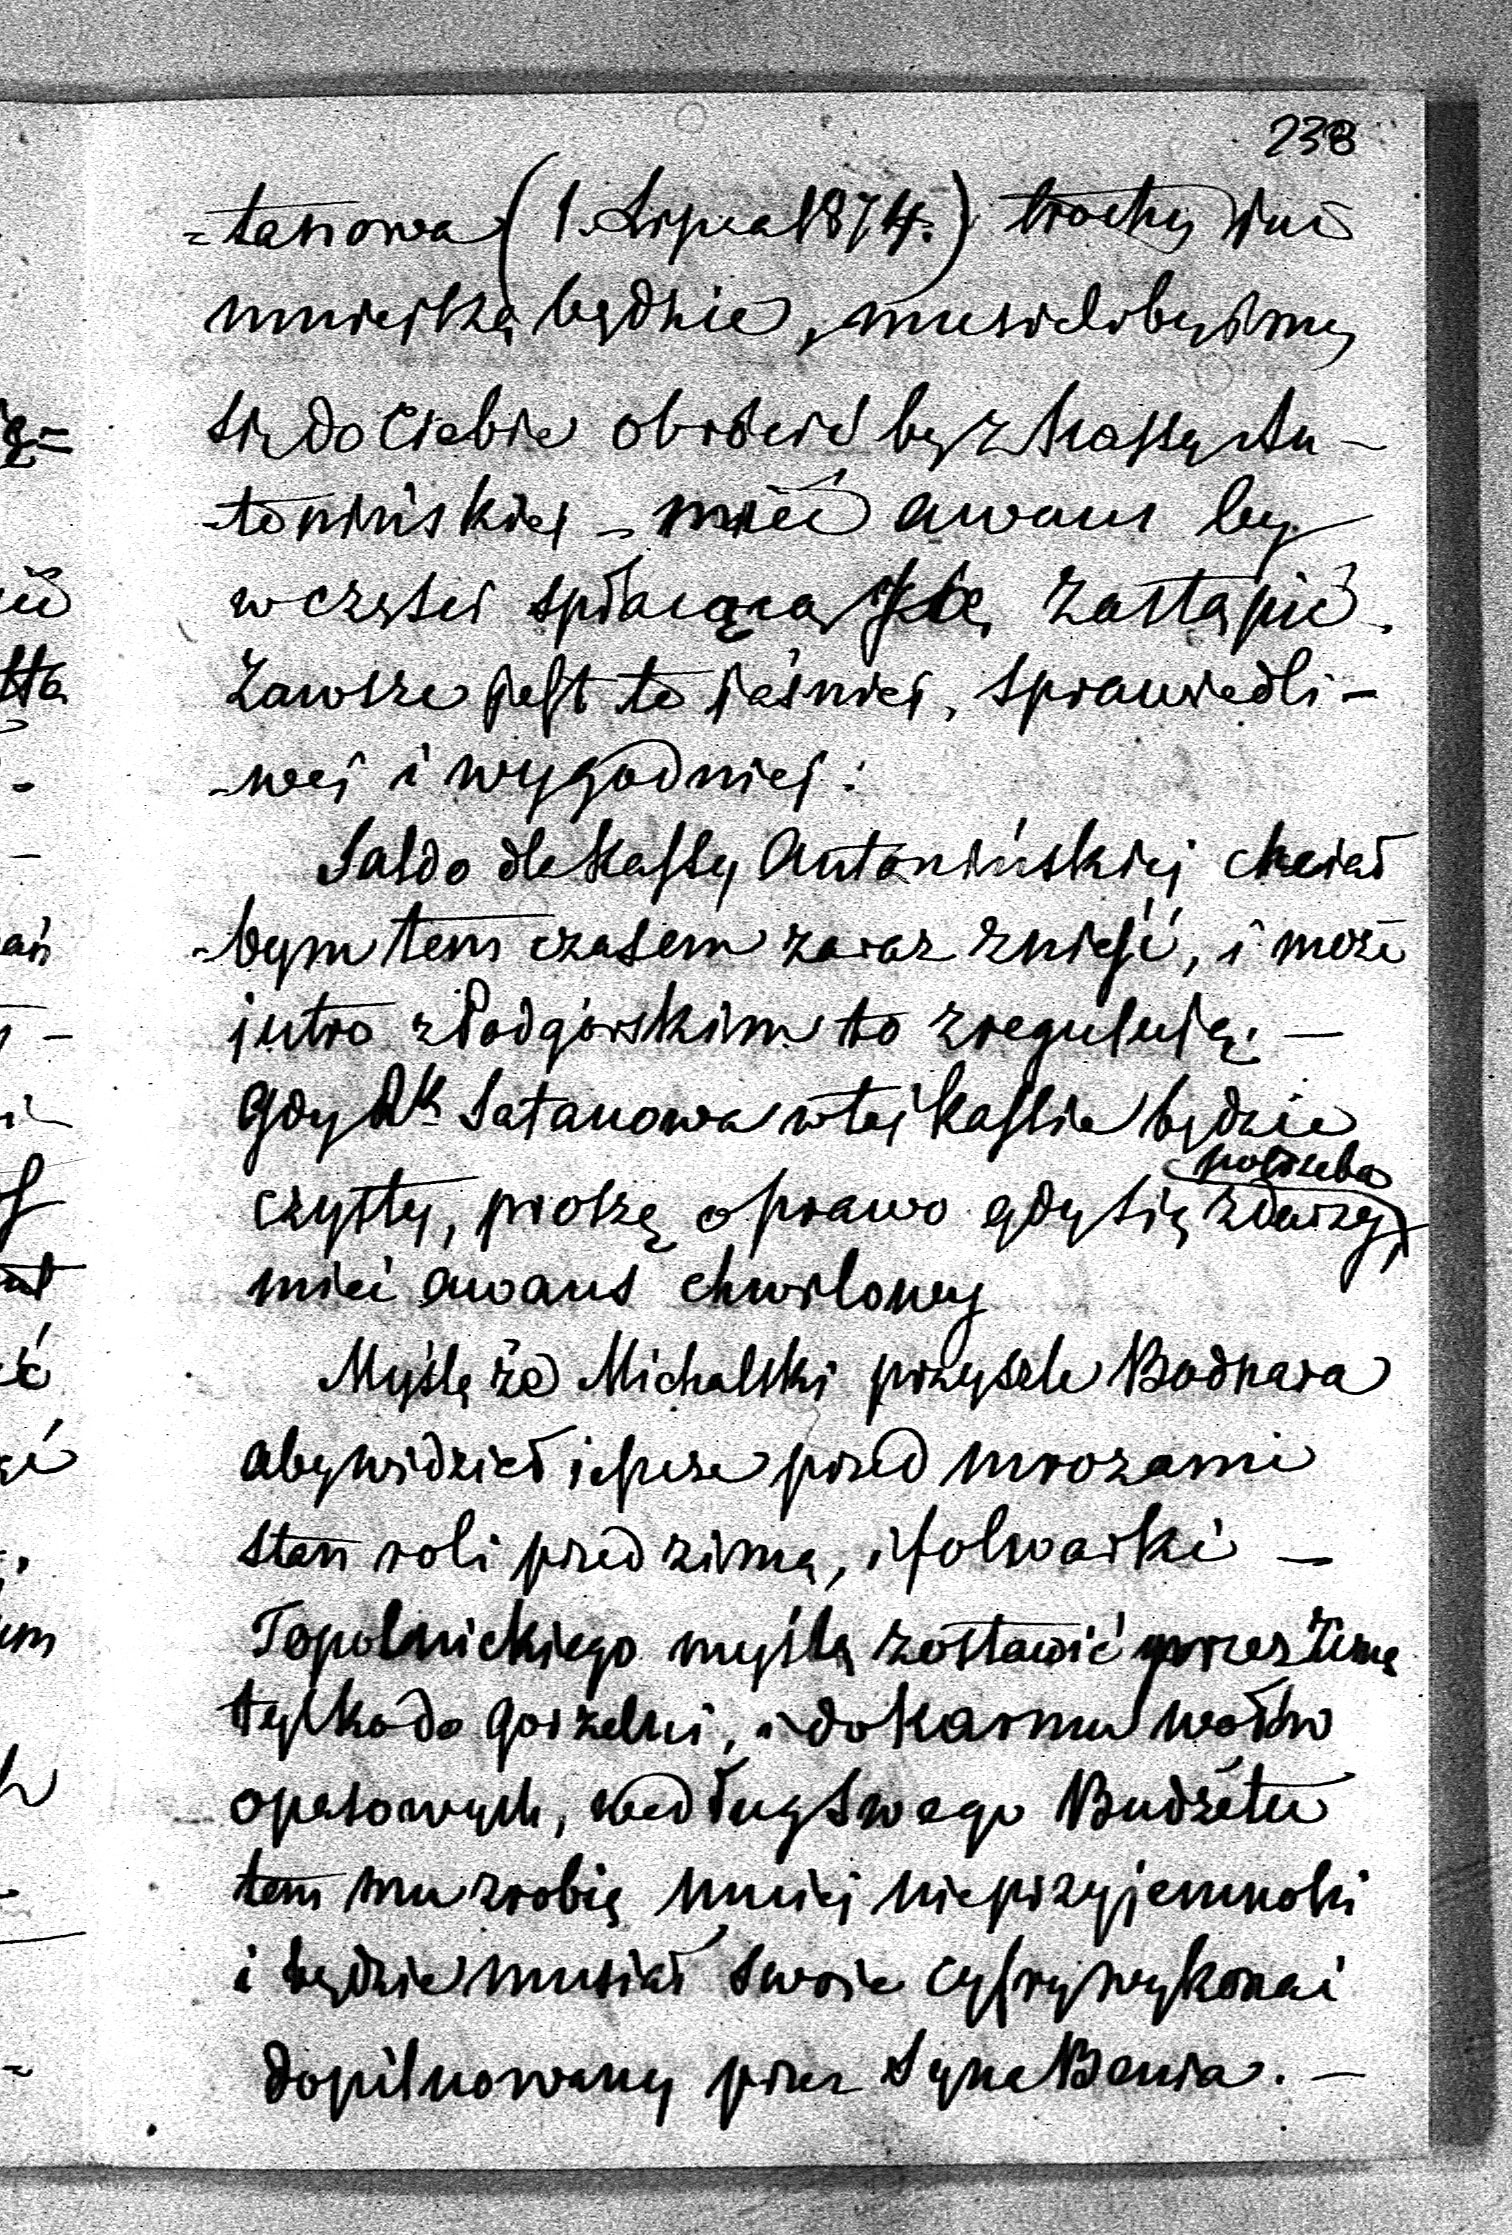 238
-tanowa (1. Lipca 1874.) trochę
mniejszą będzie, musielibyśmy
się do Ciebie obrócić by z kassy An-
-tonińskiej – mieć awans by
w części spłacącą się zastąpić.
Zawsze jest to jaśniej, sprawiedli-
-wej i wygodniej.
Saldo dla kassy Antonińskiej chciał
-bym tem czasem zaraz znieść, i może
jutro z Podgórskim to zreguluję. –
Gdy Rk Satanowa w tej kassie będzie
potrzeba
czysty, proszę o prawo gdy się zdarzy,
mieć awans chwilowy
Myślę że Michalski przyszle Bodnara
aby widział jeszcze przed mrozami
stan roli przed zimą, i folwarki –
Topolnickiego myślę zostawić przez zimę
tylko do gorzelni, i do karmu wołów
opasowych, według swego Budżetu
tem mu zrobię mniej nieprzyjemności
i będzie musiał swoje cyfry wykonać
dopilnowany przez Syna Benia. –